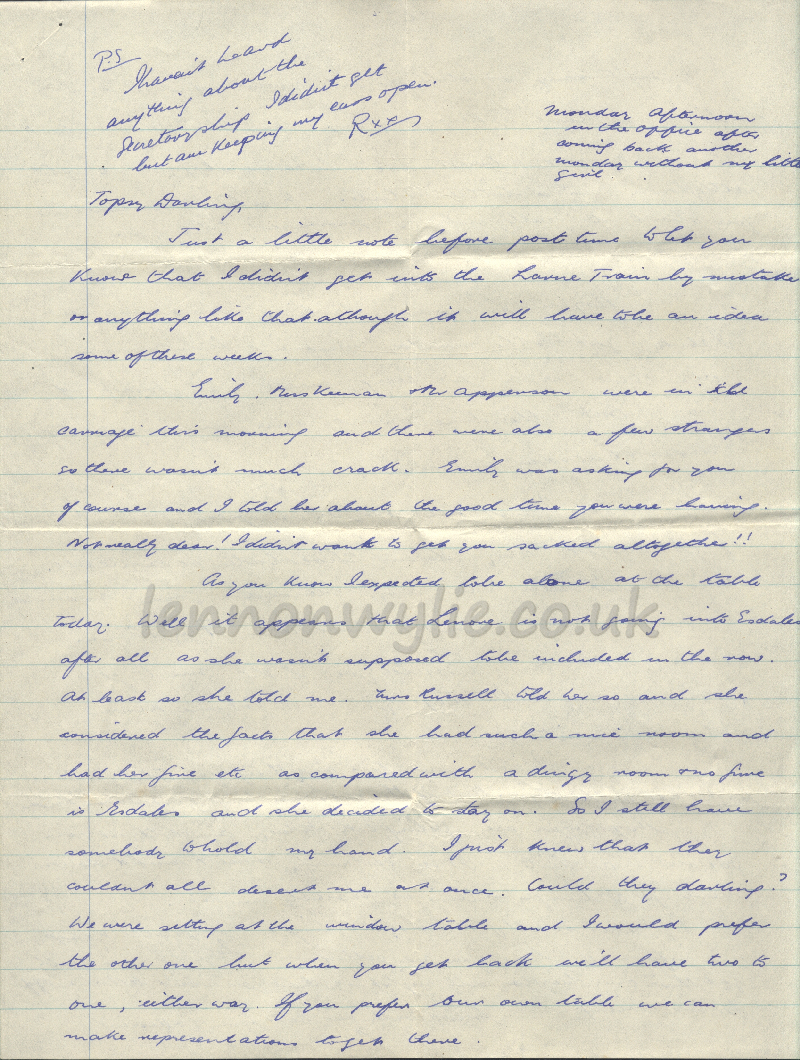 P.S
I havn't heard
anything about the
Secretaryship I didn't get
but am keeping my ears open.
Rxx
Monday Afternoon
in the office after
coming back another
monday without my little
girl.
Topsy Darling,
Just a little note before post time to let you
know that I didn't get into the Larne Train by mistake
or anything like that. although it will have to be an idea
some of these weeks.
Emily, Mrs Keenan & Mr Apperson were in the
carriage this morning and there were also a few strangers
so there wasn't much crack. Emily was asking for you
of course and I told her about the good time you were having.
Not really dear! I didn't want to get you sacked altogether!!
As you know I expected to be alone at the table
today. Well it appears that Lenore is not going into Esdales
after all as she wasn't supposed to be included in the row.
At least so she told me. Mrs Russell told her so and she
considered the facts that she had such a nice room and
had her fire etc as compared with a dingy room & no fire
in Esdales and she decided to stay on. So I still have
somebody to hold my hand. I just knew that they
couldn't all desert me at once. Could they darling?
We were setting at the window table and I would prefer
the other one but when you get back we'll have two to
one, either way. If you prefer our own table we can
make representations to get there.
lennonwylie.co.uk